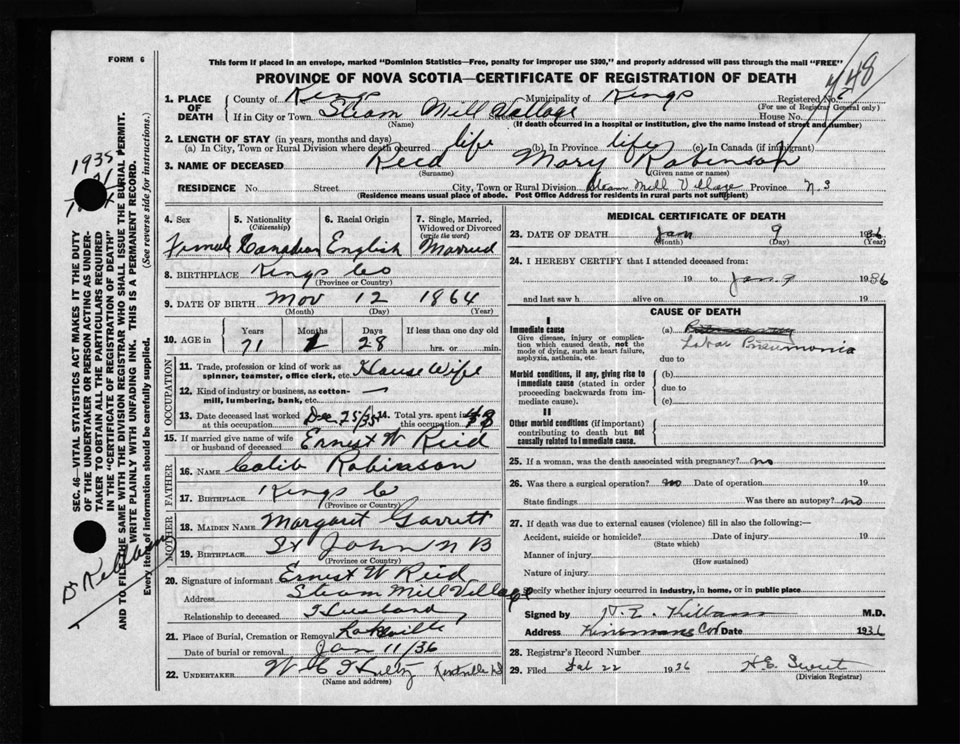 FORM 6
This form if placed in an envelope, marked "Dominion Statistics—Free, penalty for improper use $300," and properly addressed will pass through the mail "FREE"
PROVINCE OF NOVA SCOTIA—CERTIFICATE OF REGISTRATION OF DEATH
1. PLACE OF DEATH
County of Kings Municipality of Kings Registered No.
(For use of Registrar General only)
If in City or Town Steam Mill Village House No.
(Name) (If death occurred in a hospital or institution, give the name instead of street and number)
2. LENGTH OF STAY (in years, months and days)
(a) In City, Town or Rural Division where death occurred life (b) In Province life (c) In Canada (if immigrant)
3. NAME OF DECEASED Reid Mary Robinson
(Surname) (Given name or names)
RESIDENCE No. Street City, Town or Rural Division Steam Mill Village Province N.S
(Residence means usual place of abode. Post Office Address for residents in rural parts not sufficient)
4. Sex 5. Nationality (Citizenship) 6. Racial Origin 7. Single, Married, Widowed or Divorced (write the word)
Female Canadian English Married
8. BIRTHPLACE Kings Co
(Province or Country)
9. DATE OF BIRTH Nov 12 1864
(Month) (Day) (Year)
10. AGE in Years Months Days If less than one day old
71 1 28 hrs. or min.
OCCUPATION
11. Trade, profession or kind of work as spinner, teamster, office clerk, etc. House Wife
12. Kind of industry or business, as cotton-mill, lumbering, bank, etc. —
13. Date deceased last worked at this occupation Dec 25/35 14. Total yrs. spent in this occupation 48
15. If married give name of wife or husband of deceased Ernest W Reid
FATHER
16. NAME Calib Robinson
17. BIRTHPLACE Kings Co
(Province or Country)
MOTHER
18. MAIDEN NAME Margaret Garrett
19. BIRTHPLACE St John N B
(Province or Country)
20. Signature of informant Ernest W Reid
Address Steam Mill Village
Relationship to deceased Husband
21. Place of Burial, Cremation or Removal Lakeville
Date of burial or removal Jan 11/36
22. UNDERTAKER W Kentville NS
(Name and address)
MEDICAL CERTIFICATE OF DEATH
23. DATE OF DEATH Jan 9 1936
(Month) (Day) (Year)
24. I HEREBY CERTIFY that I attended deceased from:
19 to Jan. 9 1936
and last saw h alive on 19
CAUSE OF DEATH
I
Immediate cause
Give disease, injury or complication which caused death, not the mode of dying, such as heart failure, asphyxia, asthenia, etc.
(a)
Lobar Pneumonia
due to
Morbid conditions, if any, giving rise to immediate cause (stated in order proceeding backwards from immediate cause).
(b)
due to
(c)
II
Other morbid conditions (if important) contributing to death but not causally related to immediate cause.
25. If a woman, was the death associated with pregnancy? no
26. Was there a surgical operation? no Date of operation 19
State findings Was there an autopsy? no
27. If death was due to external causes (violence) fill in also the following:—
Accident, suicide or homicide? Date of injury 19
(State which)
Manner of injury
(How sustained)
Nature of injury
Specify whether injury occurred in industry, in home, or in public place
Signed by Killam M.D.
Address Kinsmans Cor Date 1936
28. Registrar's Record Number
29. Filed 22 1936 H.E. Sweet
(Division Registrar)
SEC. 46—VITAL STATISTICS ACT MAKES IT THE DUTY
OF THE UNDERTAKER OR PERSON ACTING AS UNDER-
TAKER TO OBTAIN ALL THE PARTICULARS REQUIRED
IN THE "CERTIFICATE OF REGISTRATION OF DEATH"
AND TO FILE THE SAME WITH THE DIVISION REGISTRAR WHO SHALL ISSUE THE BURIAL PERMIT.
WRITE PLAINLY WITH UNFADING INK. THIS IS A PERMANENT RECORD.
Every item of information should be carefully supplied. (See reverse side for instructions.)
1935
Dr Killam